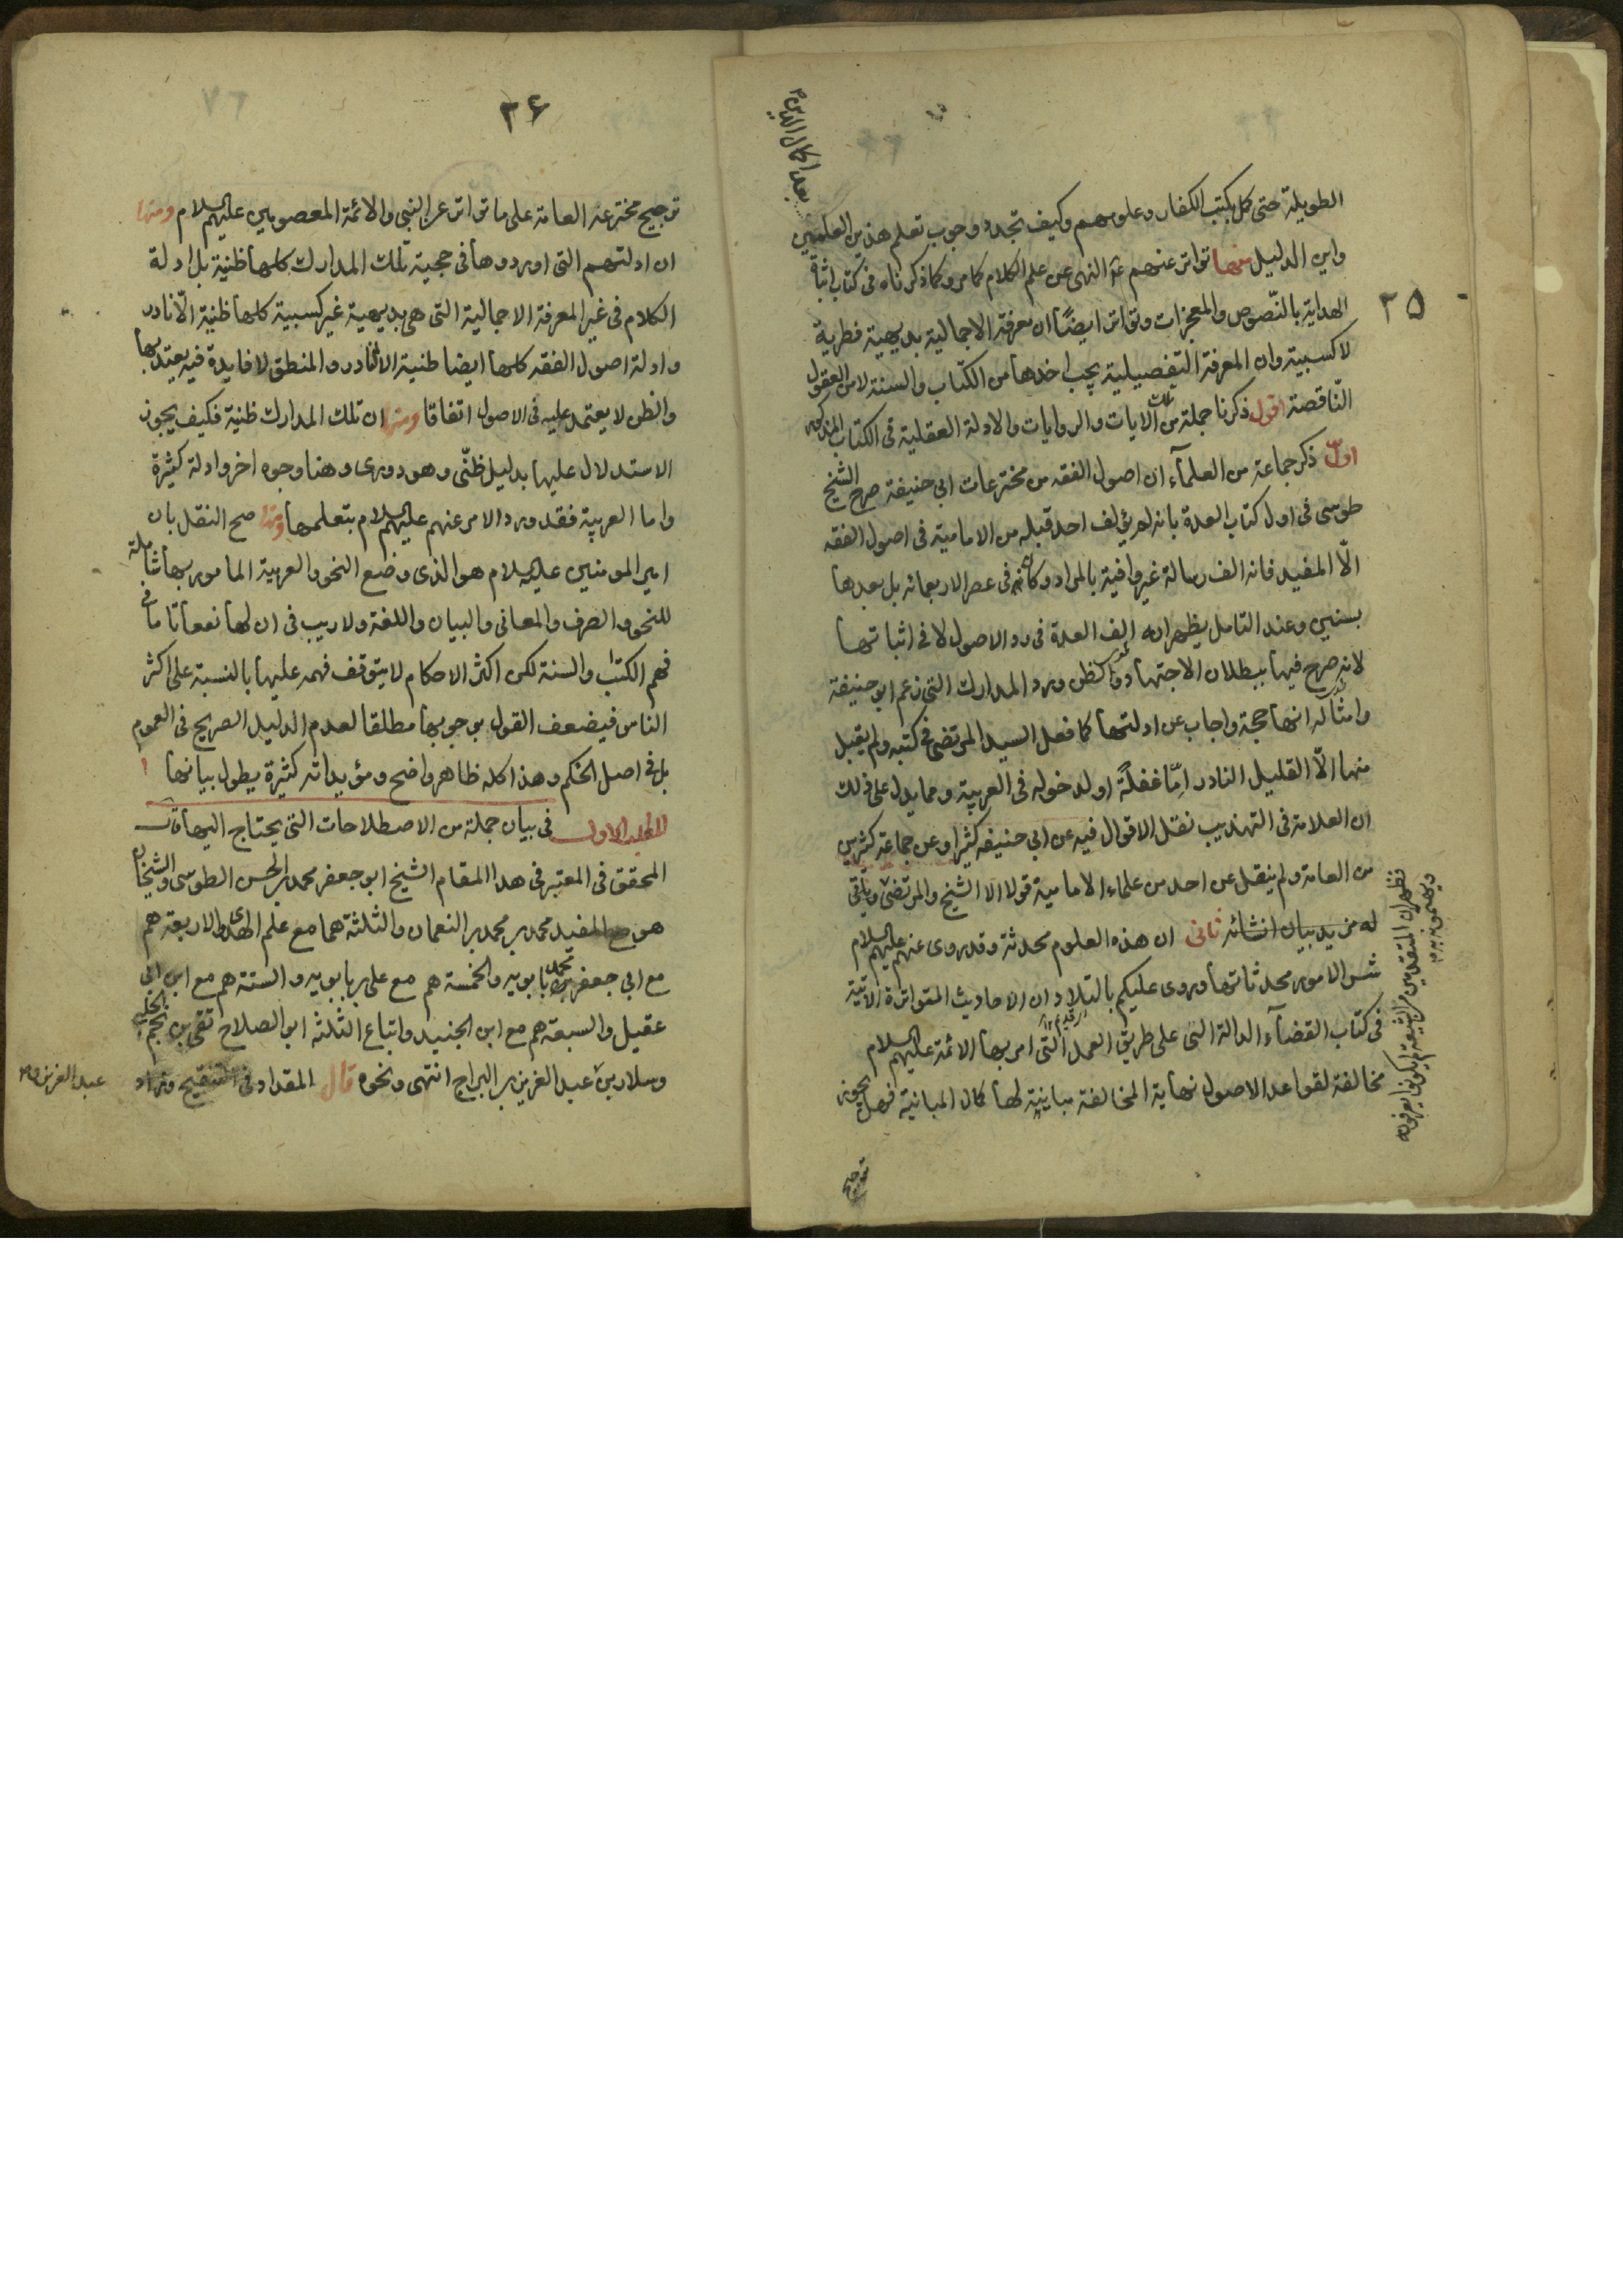 ٢٥
الطويلة حتى كل بكتب الكفار وعلومهم وكيف تجدد وجوب تعلم هذين العلمين
بعد اكمال الدين
واين الدليل منها تواتر عنهم النهى عن علم الكلام كما مر وكما ذكرناه فى كتاب اثباة
الهداية بالنّصوص والمعجزات وتواتر ايضاً ان معرفة الاجمالية بديهية فطرية
لا كسبية وان المعرفة التفصيلية يجب اخذها من الكتاب والسنة لا من العقول
النّاقصة اقول ذكرنا جملة من تلك الايات والروايات والادلة العقلية فى الكتاب المذكور
اول ذكر جماعة من العلمآء ان اصول الفقه من مخترعات ابى حنيفة صرح الشيخ
طوسى فى اول كتاب العدة بانه لم يؤلف احد قبله من الامامية فى اصول الفقه
الّا المفيد فانه الف رسالة غير وافية بالمراد وكانه فى عصر الاربعمائه بل بعدها
بسنين وعند التامل يظهر انه الف العدة فى رد الاصول لا فى اثباتها
لانه صرح فيها ببطلان الاجتهاد والظن ورد المدارك التى زعم ابو حنيفة
وامثاله انها حجة واجاب عن ادلتها كما فعل السيد المرتضى فى كتبه ولم يقبل
منها الّا القليل النادر امّا غفلةً او لدخوله فى العربية ومما يدل على ذلك
ان العلامة فى التهذيب نقل الاقوال فيه عن ابى حنيفه كثيرا وعن جماعة كثيرين
من العامة ولم ينقل عن احد من علماء الامامية قولا الا الشيخ والمرتضى وياتى
له مزيد بيان انشائه ثانى ان هذه العلوم محدثة وقد روى عنهم عليهم السلام
شر الامور محدثاتها وروى عليكم بالتلاد ان الاحاديث المتواترة الاتية
فى كتاب القضآء الدالة التى على طريق العمل التى امر بها الائمة عليهم السلام
مخالفة لقواعد الاصول نهاية المخالفة مباينة لها كمال المباينة فهل يجوز
ترجيح
٢۶
ترجيح مخترعه العامة على ما تواتر عن النبى والائمة المعصومين عليهم السلام ومنها
ان ادلتهم التى اوردوها فى حجية تلك المدارك كلها ظنية بل ادلة
الكلام فى غير المعرفة الاجمالية التى هى بديهية غير كسبية كلها ظنية الّا نادر
وادلة اصول الفقه كلها ايضا ظنية الا النادر والمنطق لا فايدة فيه يعتد بها
والظن لا يعتمد عليه فى الاصول اتفاقا ومنها ان تلك المدارك ظنية فكيف يجوز
الاستدلال عليها بدليل ظنّى وهو دورى وهنا وجوه اخر وادلة كثيرة
واما العربية فقد ورد الامر عنهم عليهم السلام بتعلمها ومنها صح النقل بان
امير المومنين عليه السلام هو الذى وضع النحو والعربية المامور بها شاملة
للنحو والصرف والمعانى والبيان واللغة ولا ريب فى ان لها نفعا تاما فى
فهم الكتاب والسنة لكن اكثر الاحكام لا يتوقف فهمه عليها بالنسبة على اكثر
الناس فيضعف القول بوجوبها مطلقا لعدم الدليل الصريح فى العموم
بل فى اصل الحكم وهذا كله ظاهر واضح ومؤيداته كثيرة يطول بيانها
المطلب الاول فى بيان جملة من الاصطلاحات التى يحتاج اليها قال
المحقق فى المعتبر فى هذا المقام الشيخ ابو جعفر محمد بن الحسن الطوسى والشيخان
هو مع المفيد محمد بن محمد بن النعمان والثلثة هما مع علم الهدى والاربعة هم
مع ابى جعفر محمد بن بابويه والخمسة هم مع على بن بابويه والستة هم مع ابن ابى
عقيل والسبعة هم مع ابن الجنيد واتباع الثلثه ابو الصلاح تقى بن نجم الحلبى
وسلار بن عبد العزيز بن البراج انتهى ونحوه قال المقداد فى التنقيح وزاد
عبد العزيز